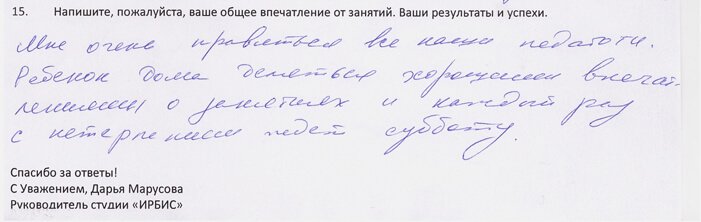 15. Напишите, пожалуйста, ваше общее впечатление от занятий. Ваши результаты и успехи.
Мне очень нравиться все наши педагоги.
Ребенок дома делиться хорошими впечат-
лениями о занятиях и каждый раз
с нетерпением ждет субботу.
Спасибо за ответы!
С Уважением, Дарья Марусова
Руководитель студии «ИРБИС»